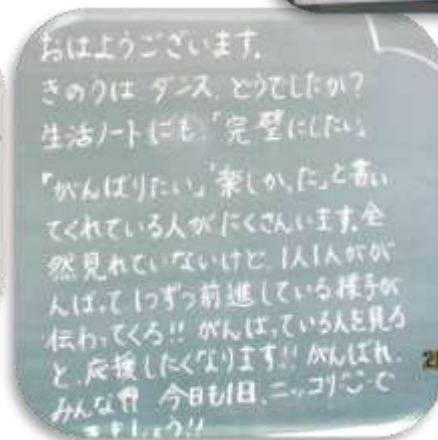 おはようございます。
きのうは ダンス、どうでしたか?
生活ノートにも、「完璧にしたい」
「がんばりたい」「楽しかった」と書い
てくれている人がたくさんいます。全
然見れていないけど、1人1人がが
んばって1つずつ前進している様子が
伝わってくる!! がんばっている人を見る
と、応援したくなります!! がんばれ、
みんな!! 今日も1日、ニッコリ
ましょう!!